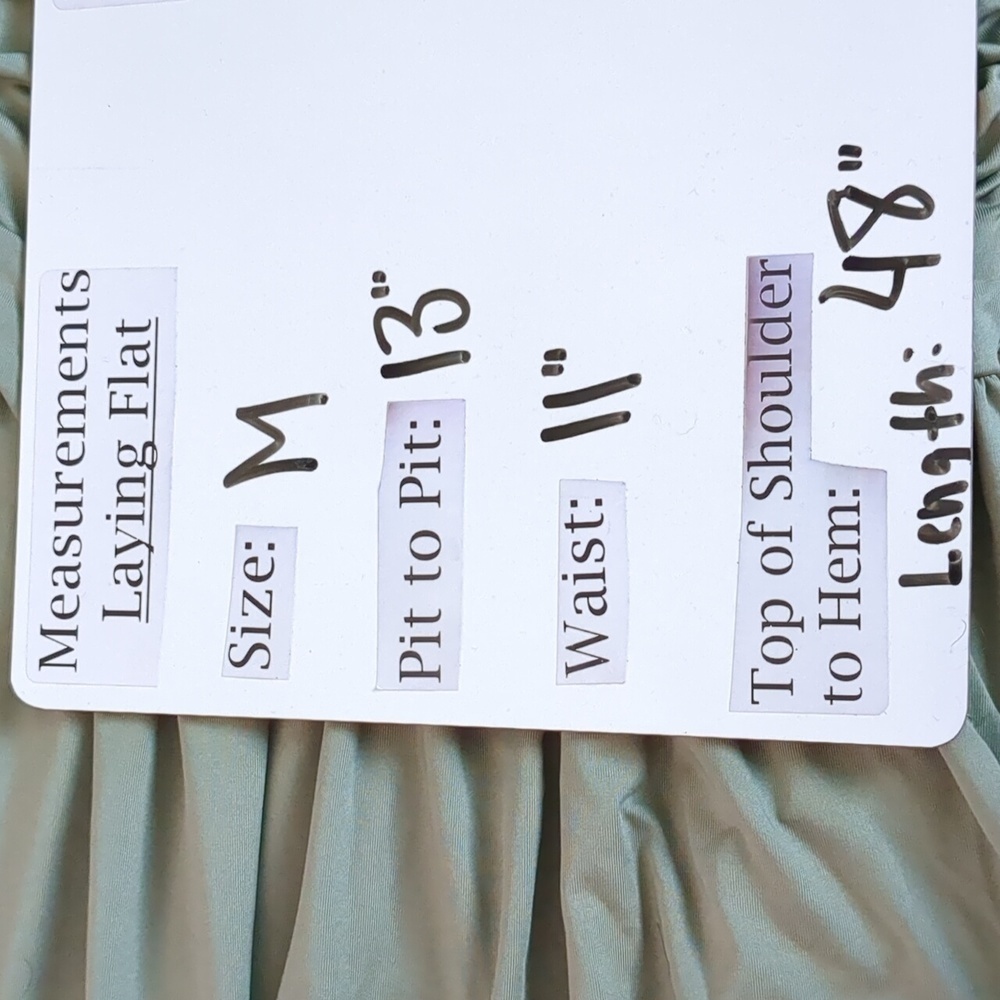 Measurements
Laying Flat
Size: M
Pit to Pit: 13"
Waist: 11"
Top of Shoulder
to Hem: 48"
Length: